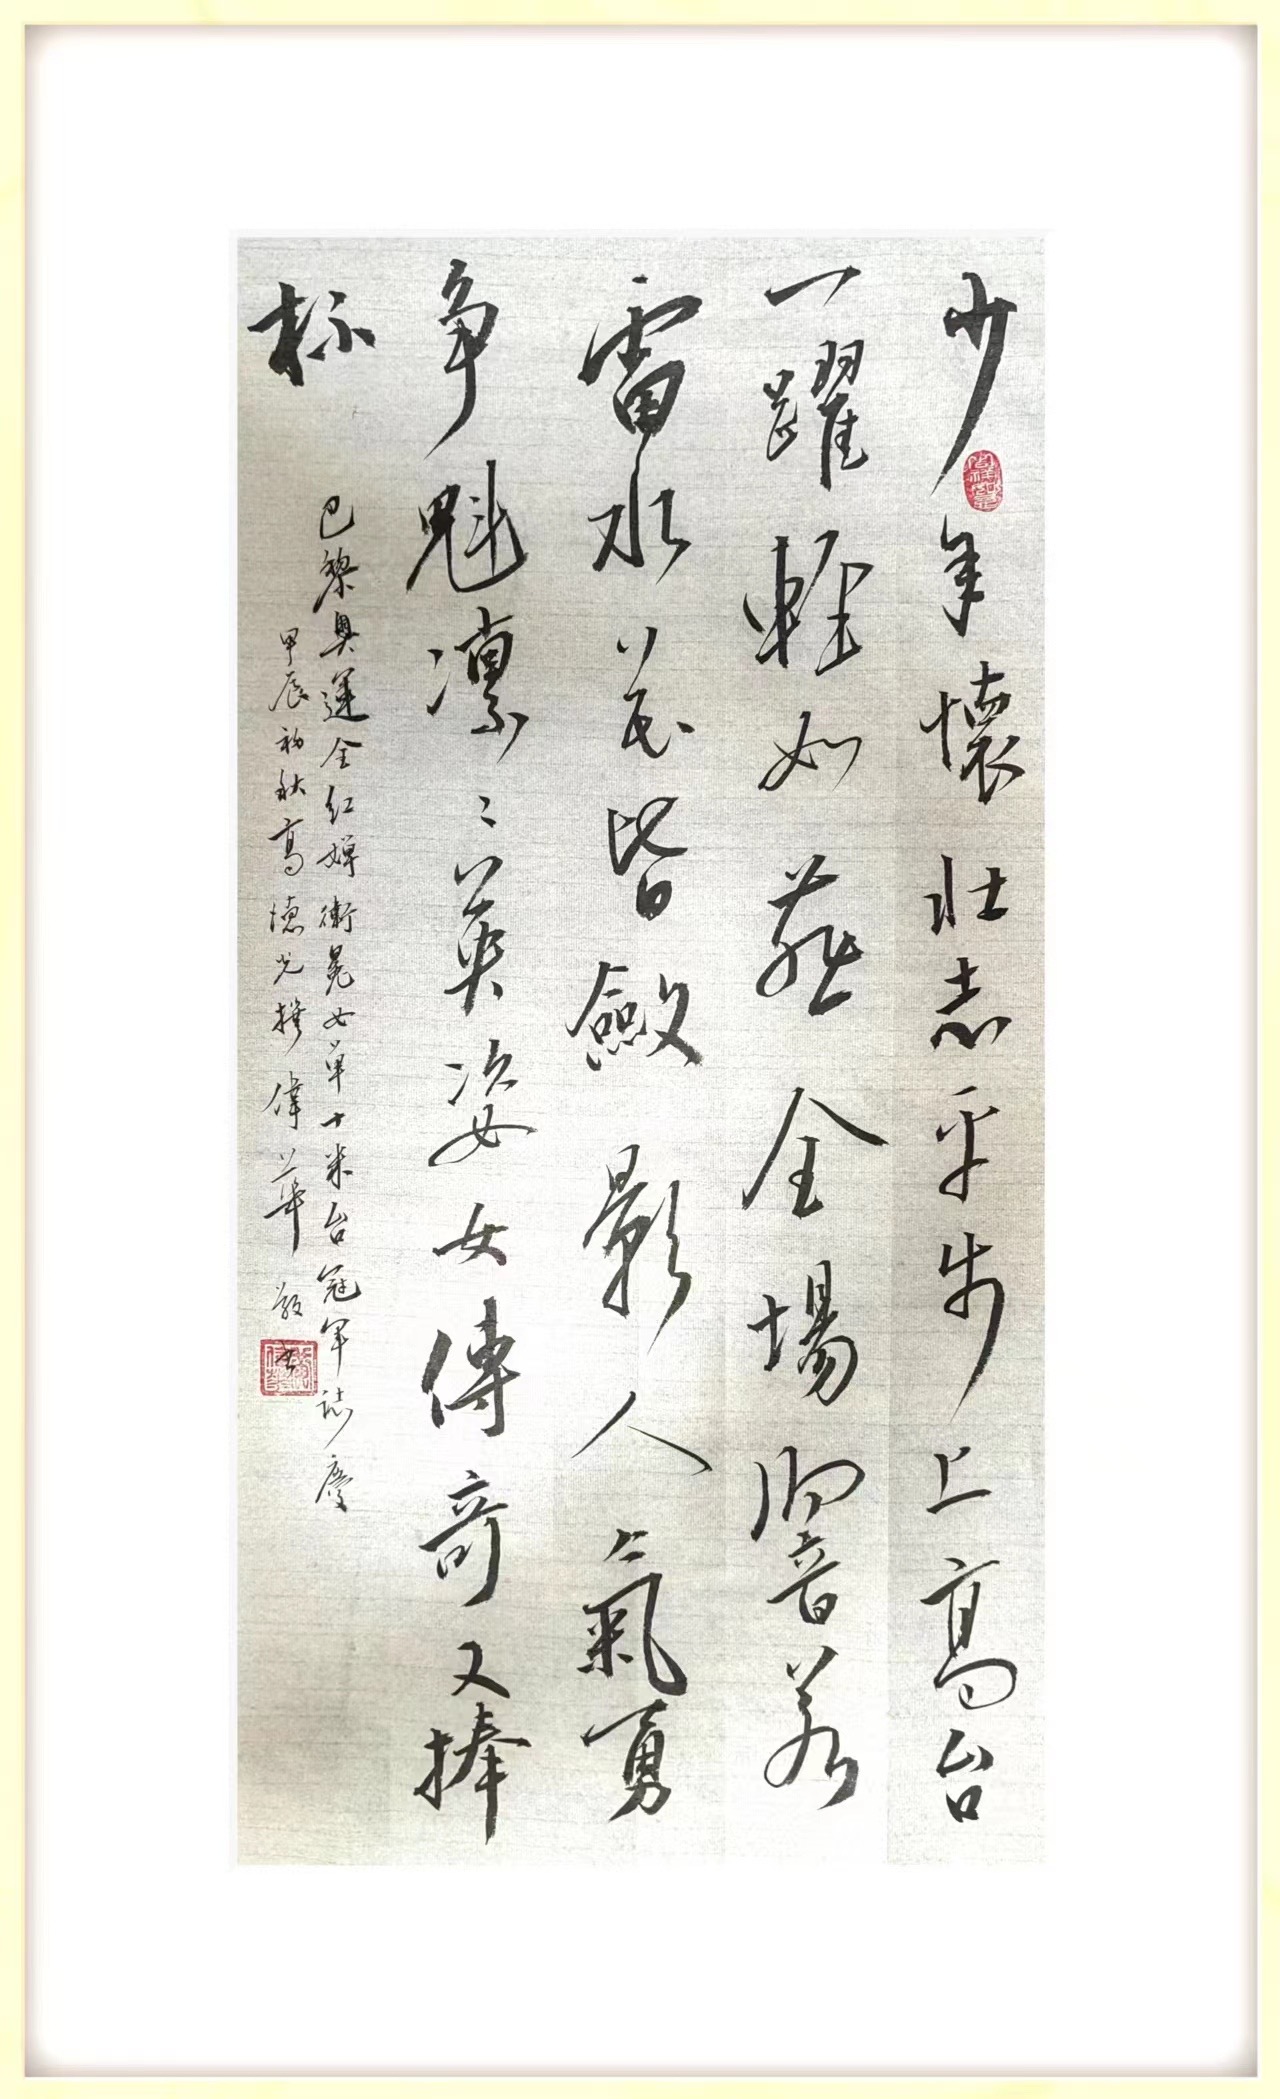 少年懷壯志平步上高台
一躍輕如燕全場響若
雷水花皆斂影人人氣勇
争魁凛々英姿女傳奇又捧
杯
巴黎奥運全红嬋衛冕女单十米台冠军誌慶
甲辰初秋高德光撰 偉華敬书